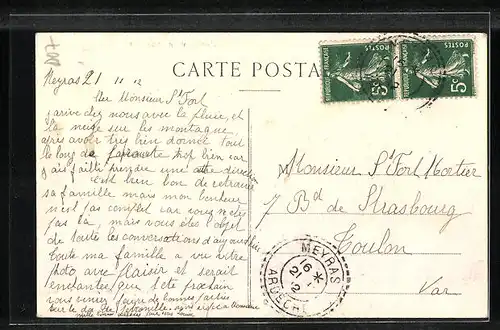 D07
CARTE POSTA
Meyras 21 11 12
Cher Monsieur St Fort
j'arrive chez nous avec la pluie, et
la neige sur les montagne
après avoir très bien dormée tout
le long de trop bien car
j'ai failli prendre une autre direction
c'est bien bon de retrouver
sa famille mais mon bonheur
n'est pas complet car vous n'êtes
pas là, mais vous êtes l'objet
de toutes les conversations d'aujourd'hui
toute ma famille a vu votre
photo avec plaisir et serait
enchantée que l'été prochain
vous veniez faire de bonnes parties
sur le dos de
mille
Monsieur St Fort Mortier
7 Bd de Strasbourg
Toulon
Var
POSTES
5c
POSTES
5c
REPUBLIQUE FRANÇAISE
MEYRAS
16
21-12
ARDECHE